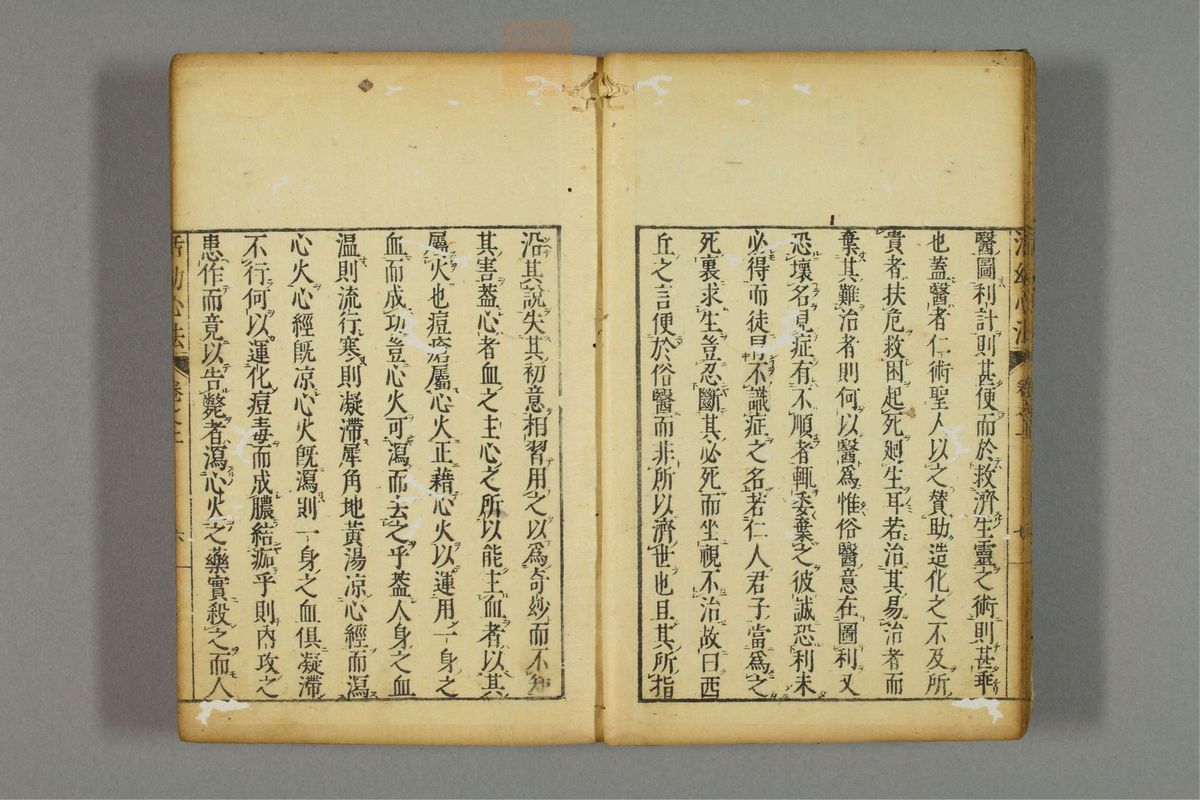 活幼心法
醫圖利計則甚便而於救濟生靈之術則甚乖
也蓋醫者仁術聖人以之賛助造化之不及所
貴者扶危救困起死廻生耳若治其易治者而
棄其難治者則何以醫爲惟俗醫意在圖利又
恐壞名見症有不順者輒委棄之彼誠恐利未
必得而徒冐不識症之名若仁人君子當爲之
死裏求生豈忍斷其必死而坐視不治故曰西
丘之言便於俗醫而非所以濟世也且其所指
沿其說失其初意相習用之以爲奇妙而不知
其害蓋心者血之主心之所以能主血者以其
屬火也痘瘡屬心火正藉心火以運用一身之
血而成功豈心火可瀉而去之乎葢人身之血
温則流行寒則凝滯犀角地黃湯凉心經而瀉
心火心經旣凉心火旣瀉則一身之血俱凝滯
不行何以運化痘毒而成膿結痂乎則內攻之
患作而竟以告斃者瀉心火之藥實殺之而人
活幼心法
卷之上
六